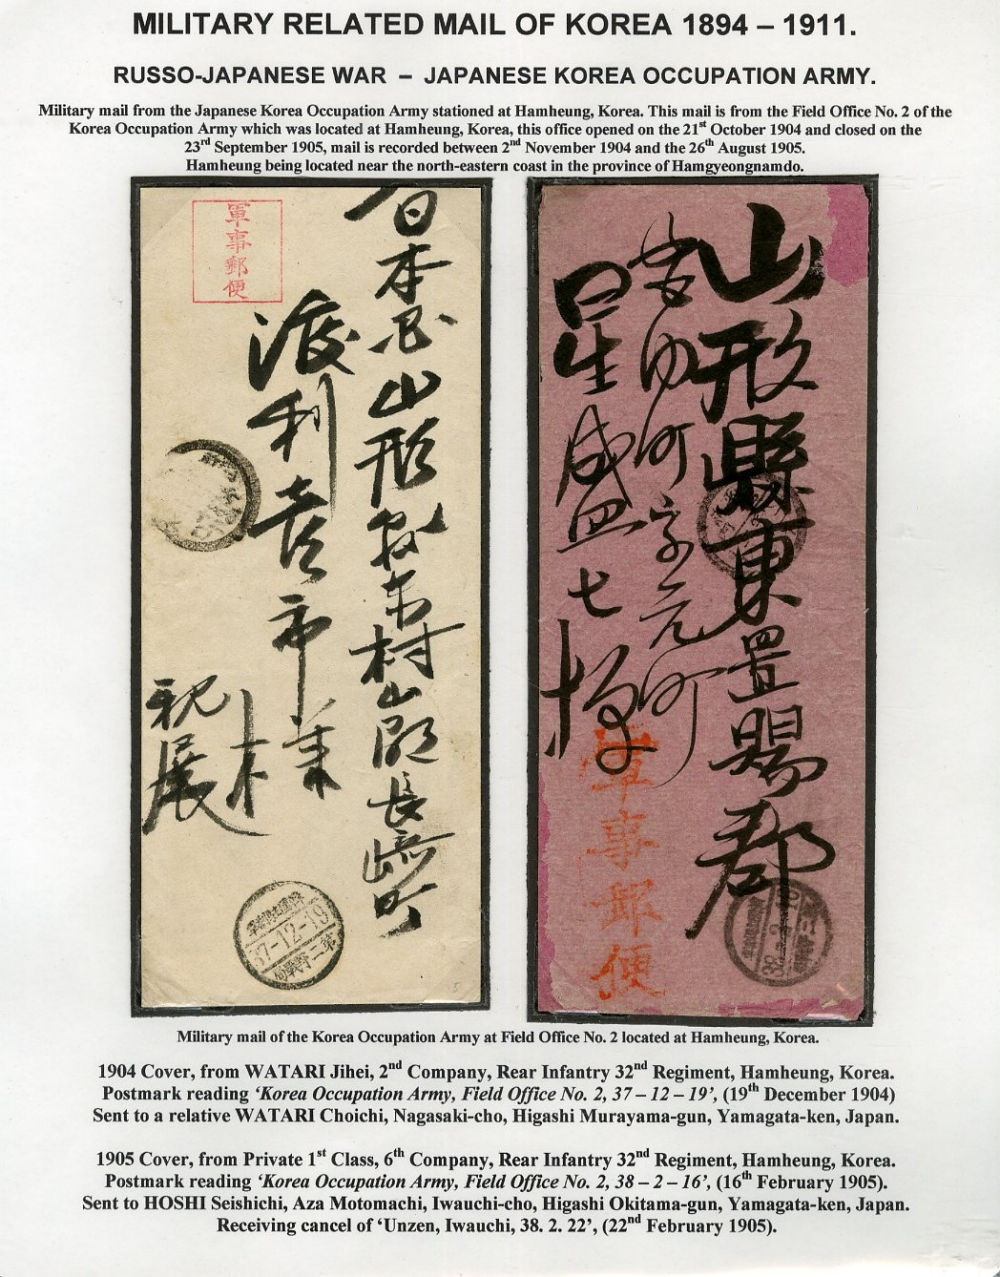 MILITARY RELATED MAIL OF KOREA 1894 – 1911.
RUSSO-JAPANESE WAR – JAPANESE KOREA OCCUPATION ARMY.
Military mail from the Japanese Korea Occupation Army stationed at Hamheung, Korea. This mail is from the Field Office No. 2 of the
Korea Occupation Army which was located at Hamheung, Korea, this office opened on the 21st October 1904 and closed on the
23rd September 1905, mail is recorded between 2nd November 1904 and the 26th August 1905.
Hamheung being located near the north-eastern coast in the province of Hamgyeongnamdo.
軍事郵便
日本国山形県東村山郡長崎町
渡利吉市
様
祝展
37-12-19
第二野戦局
山形縣東置賜郡
宮内町字元町
星盛七様
軍事郵便
Military mail of the Korea Occupation Army at Field Office No. 2 located at Hamheung, Korea.
1904 Cover, from WATARI Jihei, 2nd Company, Rear Infantry 32nd Regiment, Hamheung, Korea.
Postmark reading ‘Korea Occupation Army, Field Office No. 2, 37 – 12 – 19’, (19th December 1904)
Sent to a relative WATARI Choichi, Nagasaki-cho, Higashi Murayama-gun, Yamagata-ken, Japan.
1905 Cover, from Private 1st Class, 6th Company, Rear Infantry 32nd Regiment, Hamheung, Korea.
Postmark reading ‘Korea Occupation Army, Field Office No. 2, 38 – 2 – 16’, (16th February 1905).
Sent to HOSHI Seishichi, Aza Motomachi, Iwauchi-cho, Higashi Okitama-gun, Yamagata-ken, Japan.
Receiving cancel of ‘Unzen, Iwauchi, 38. 2. 22’, (22nd February 1905).